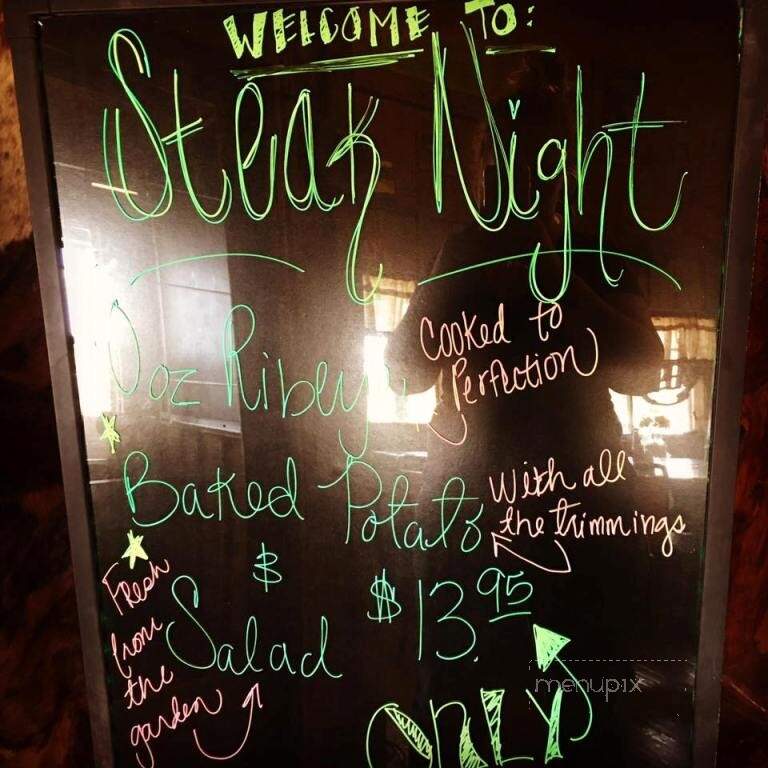 WELCOME TO:
Steak Night
oz Ribeye
Cooked to
Perfection
Baked Potato
With all
the trimmings
&
Fresh
from
the
garden
Salad
$13.95
ONLY
menupix